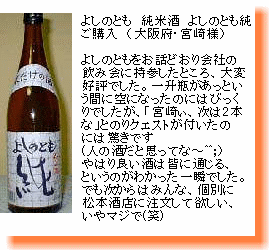 よしのとも　純米酒　よしのとも純
ご購入　（大阪府・宮崎様）
よしのともをお話どおり会社の
飲み会に持参したところ、大変
好評でした。一升瓶があっとい
う間に空になったのにはびっく
りでしたが、「宮崎ぃ、次は２本
な」とのリクエストが付いたの
には驚きです
(人の酒だと思ってな～^^;)
やはり良い酒は皆に通じる、
というのがわかった一瞬でした。
でも次からはみんな、個別に
松本酒店に注文して欲しい、
いやマジで(笑)
よしのとも
純